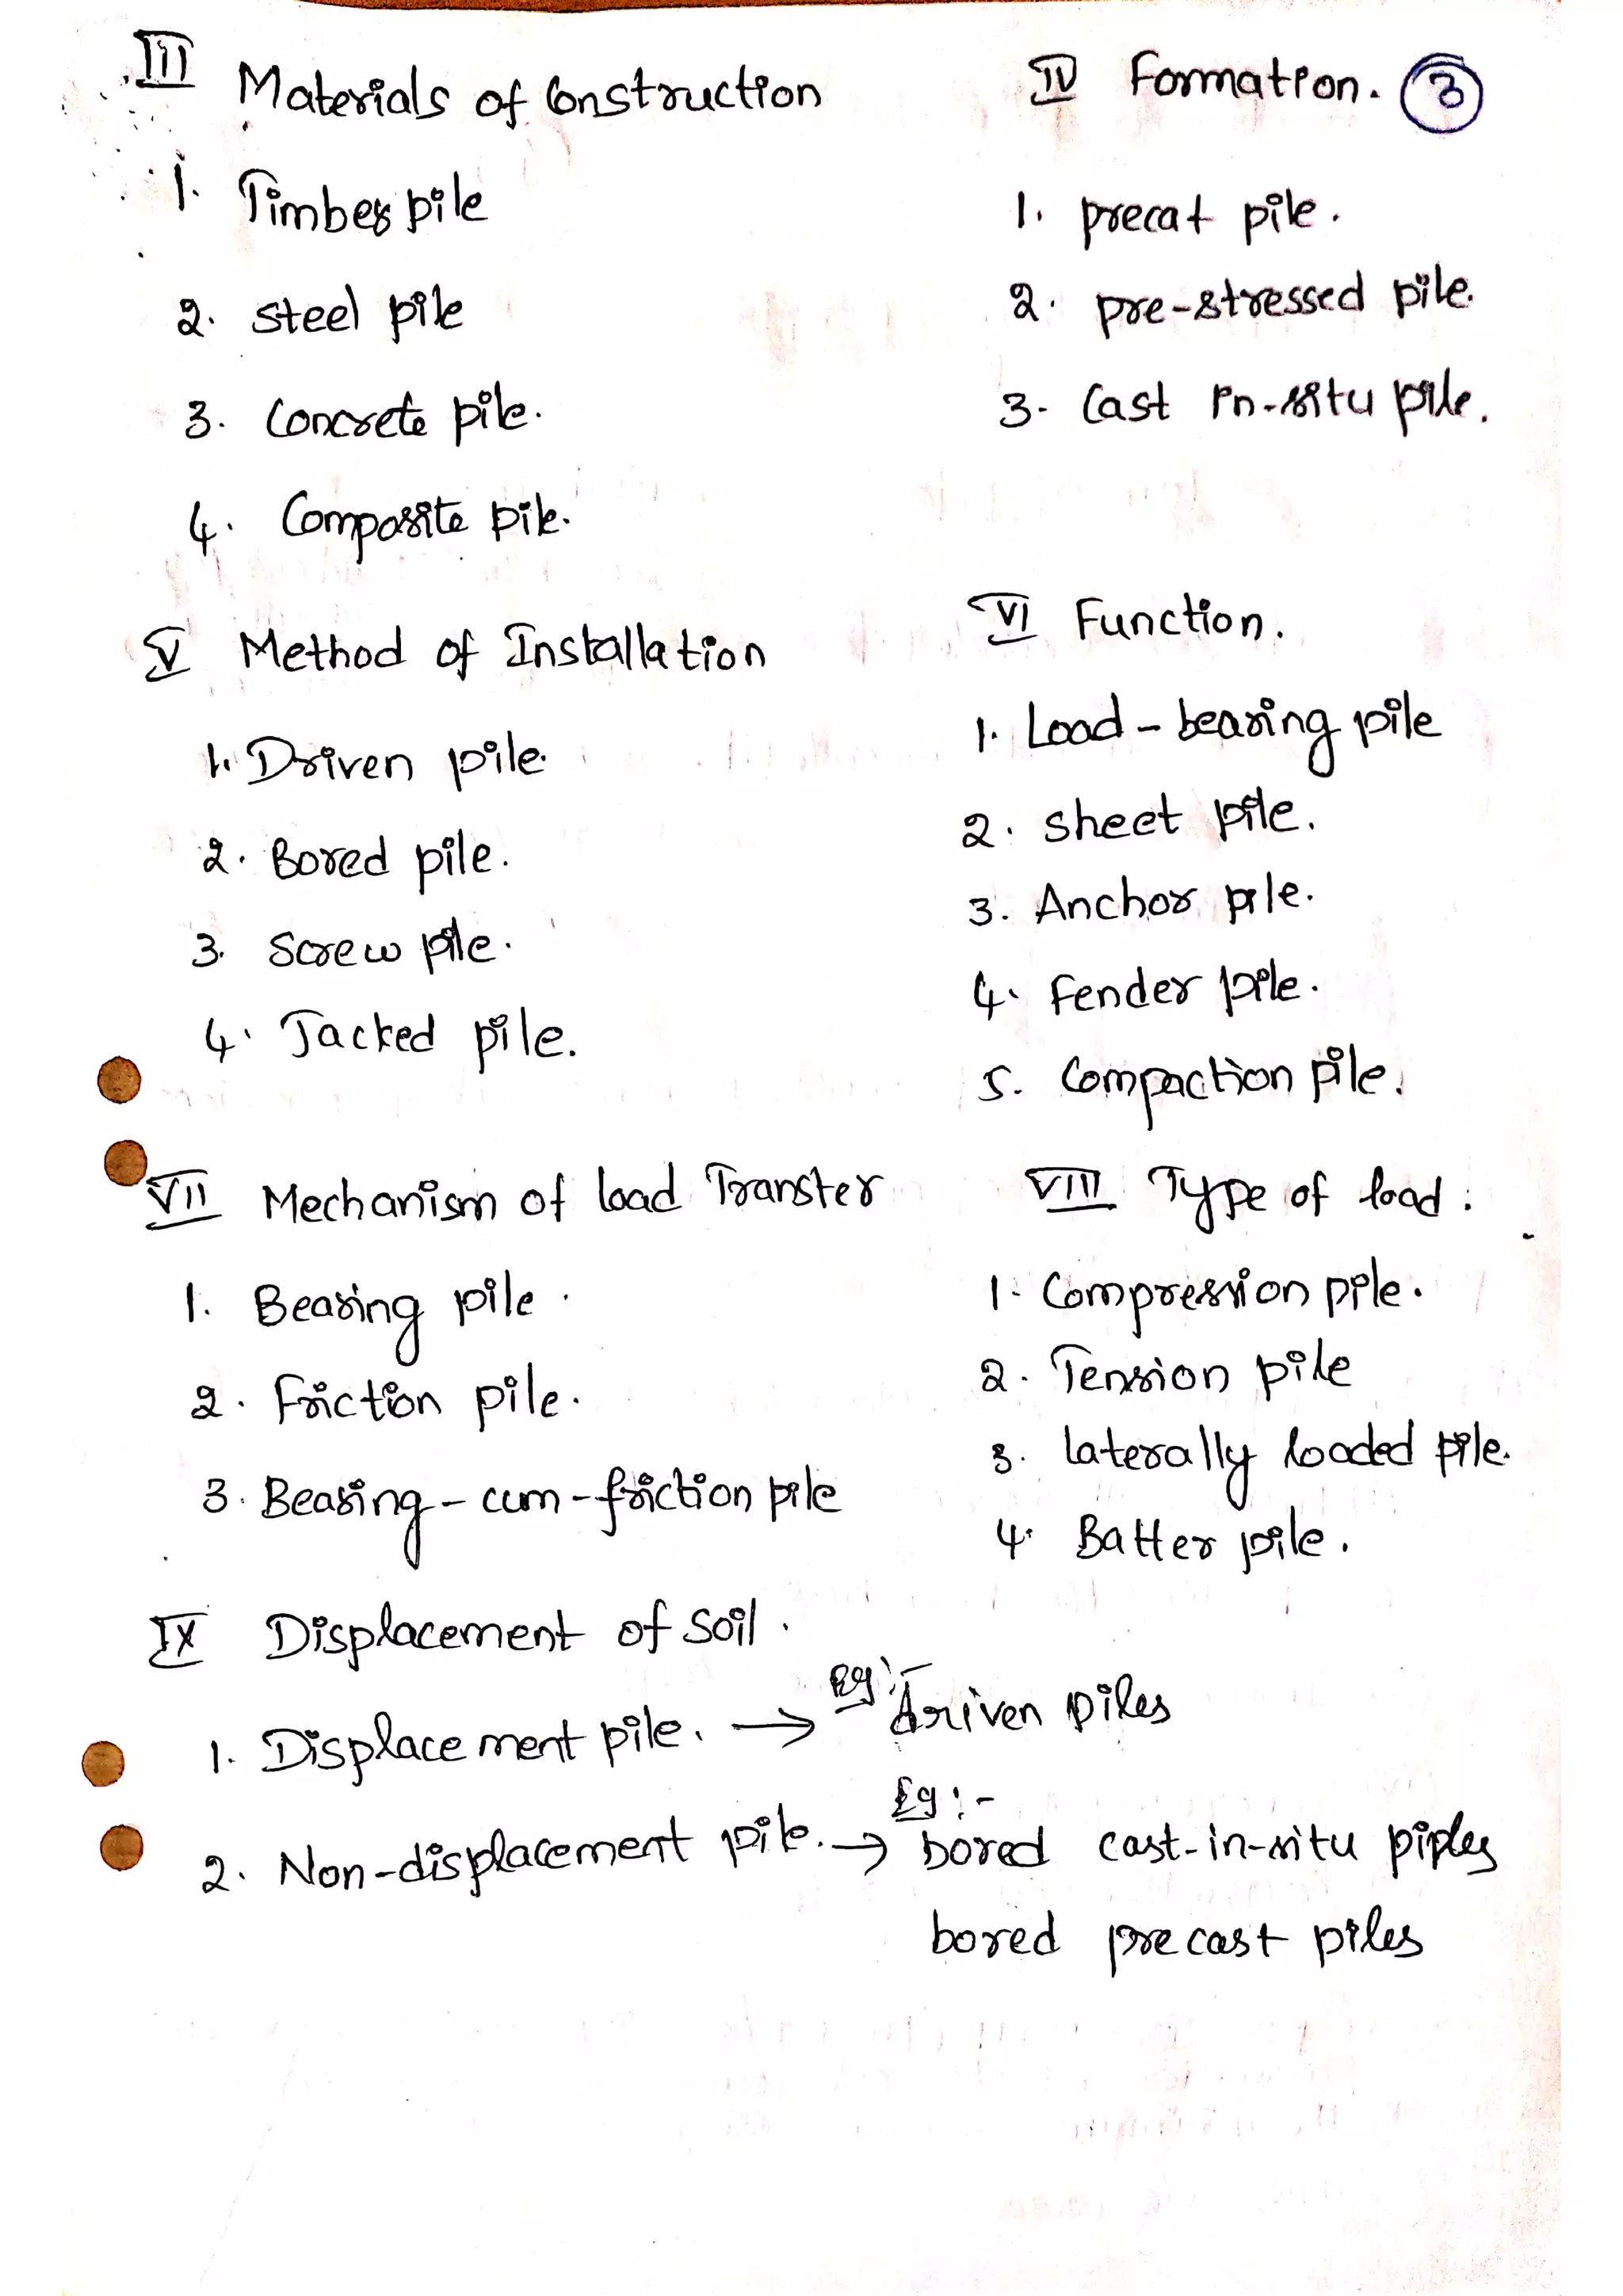 III Materials of Construction
1. Timber pile
2. Steel pile
3. Concrete pile.
4. Composite pile.
IV Formation. 3
1. precat pile.
2. pre-stressed pile.
3. Cast in-situ pile.
V Method of Installation
1. Driven pile.
2. Bored pile.
3. Screw pile.
4. Jacked pile.
VI Function.
1. Load-bearing pile
2. Sheet pile.
3. Anchor pile.
4. Fender pile.
5. Compaction pile.
VII Mechanism of load Transfer
1. Bearing pile.
2. Friction pile.
3. Bearing-cum-friction pile
VIII Type of load:
1. Compression pile.
2. Tension pile
3. laterally loaded pile.
4. Batter pile.
IX Displacement of Soil.
1. Displacement pile. → Eg:- driven piles
2. Non-displacement pile. → Eg:- bored cast-in-situ piples
bored precast piles